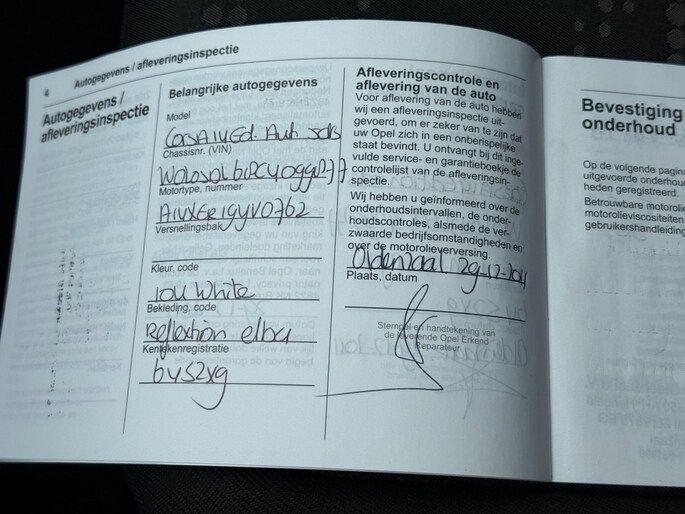 4 Autogegevens / afleveringsinspectie
Autogegevens /
afleveringsinspectie
Belangrijke autogegevens
Model
Corsa 1.4 Ed. Aut 5drs
Chassisnr. (VIN)
W0L0SDL6
Motortype, nummer
A14XER19YV0762
Versnellingsbak
Kleur, code
10U White
Bekleding, code
Reflextion elba
Kentekenregistratie
Afleveringscontrole en
aflevering van de auto
Voor aflevering van de auto hebben
wij een afleveringsinspectie uit-
gevoerd, om er zeker van te zijn dat
uw Opel zich in een onberispelijke
staat bevindt. U ontvangt bij dit inge-
vulde service- en garantieboekje de
controlelijst van de afleveringsin-
spectie.
Wij hebben u geïnformeerd over de
onderhoudsintervallen, de onder-
houdscontroles, alsmede de ver-
zwaarde bedrijfsomstandigheden en
over de motorolieverversing.
Oldenzaal 29-12-2011
Plaats, datum
Stempel en handtekening van
de leverende Opel Erkend
Reparateur
Bevestiging
onderhoud
Op de volgende pagina
uitgevoerde onderhou
heden geregistreerd.
Betrouwbare motorolie
motorolieviscositeiten
gebruikershandleiding